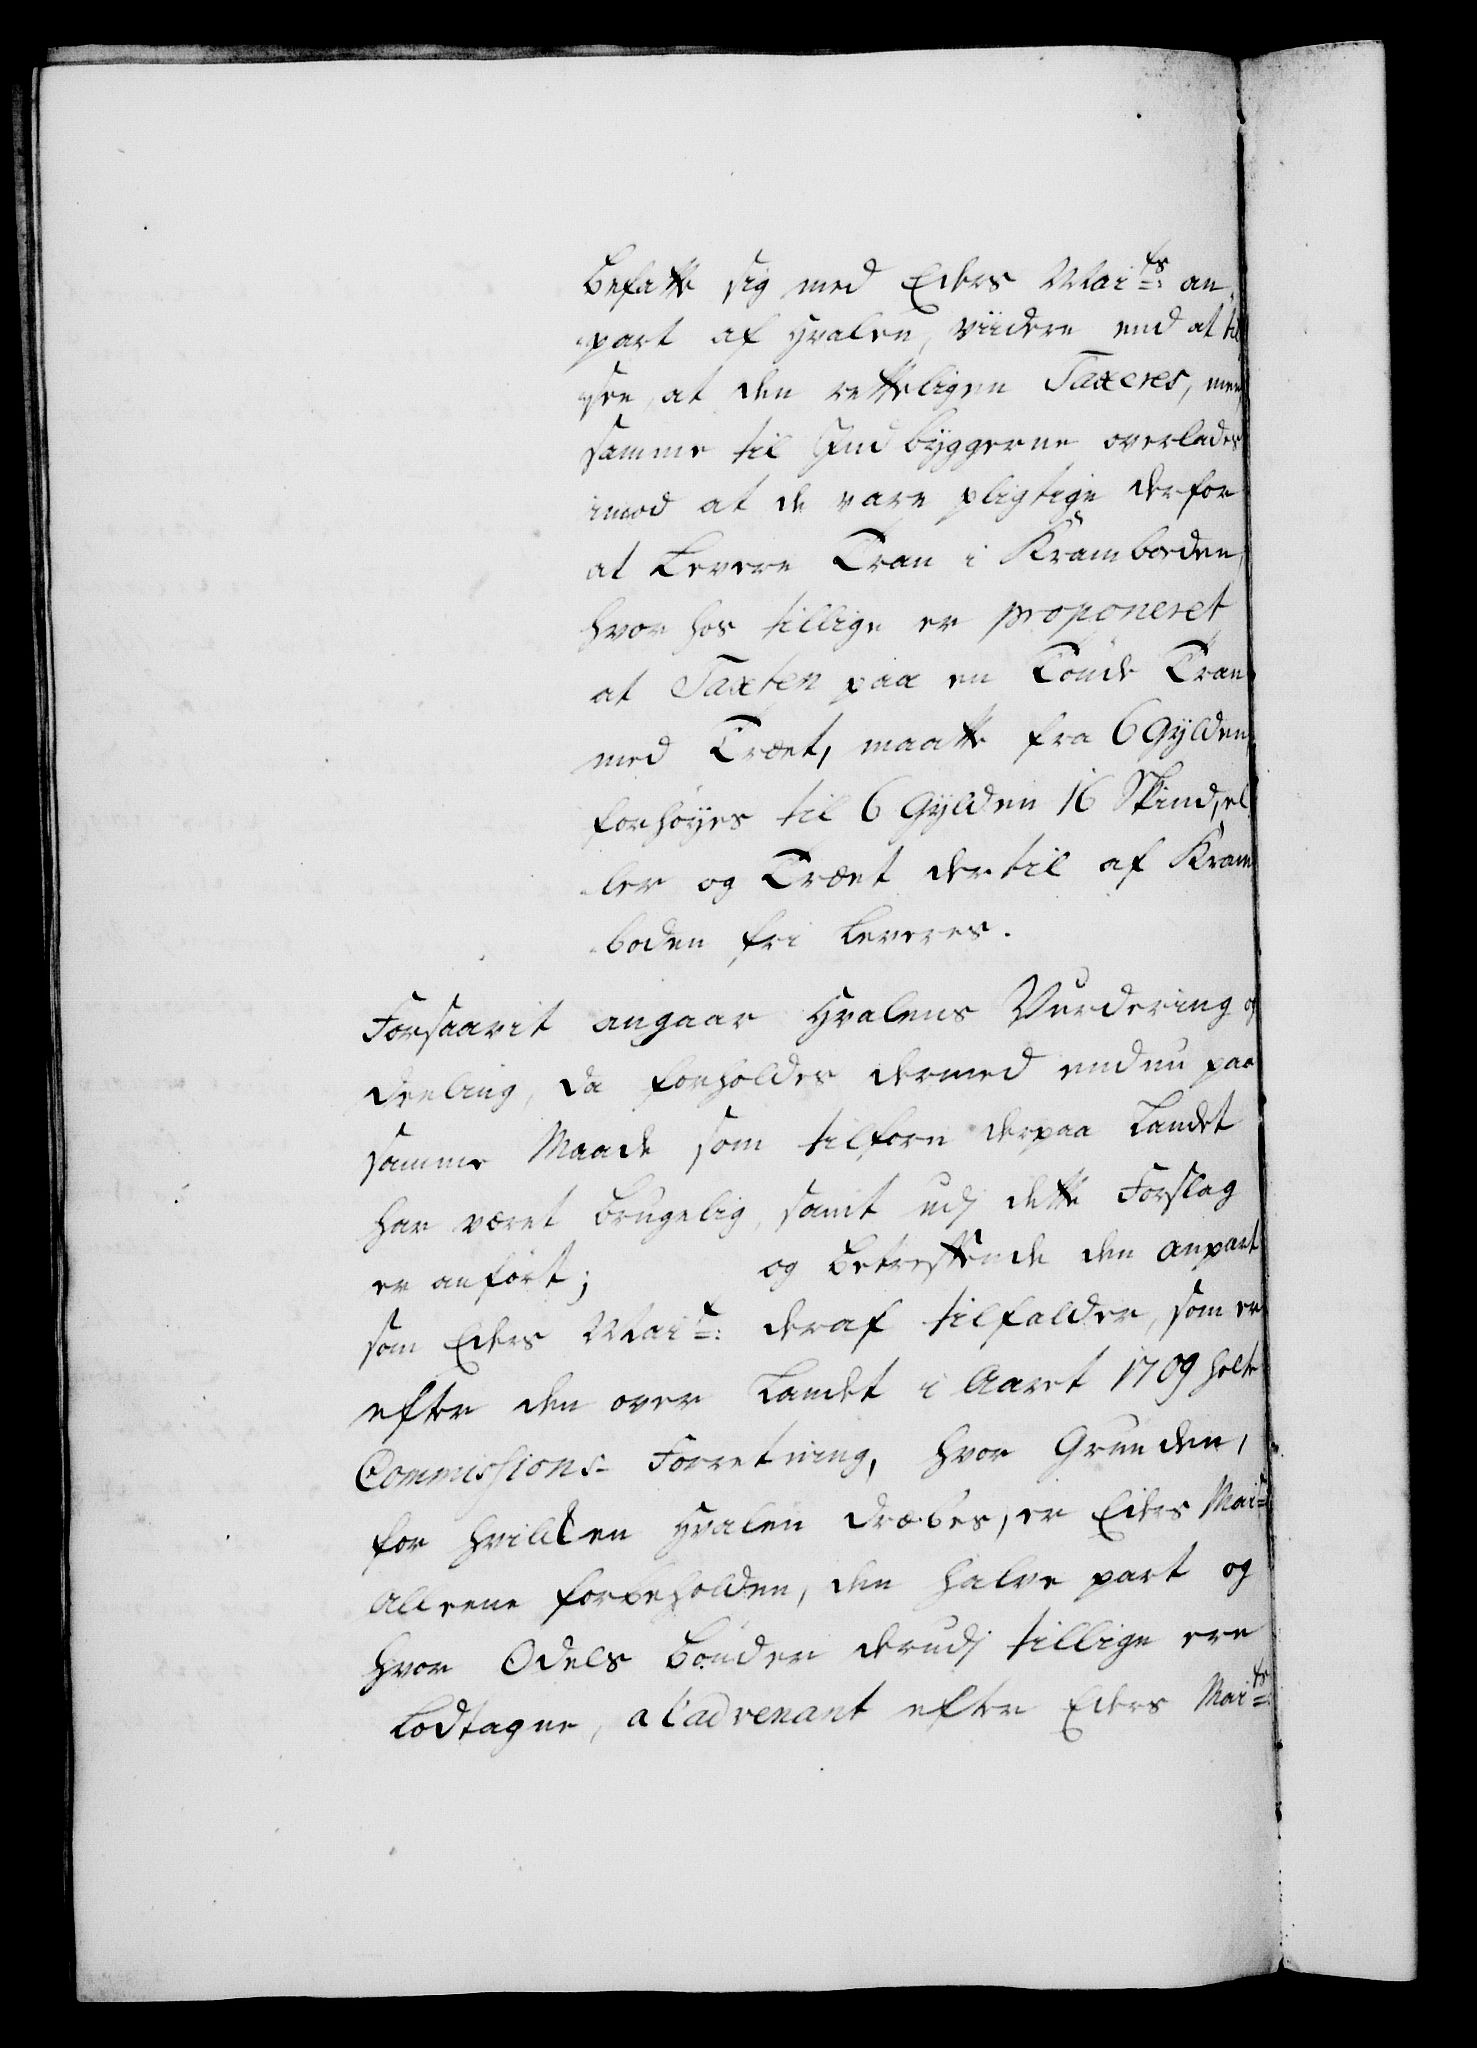 befatte sig med Eders Mai:ts an-
part af hvalen, viidere end at til
see, at den rettelig en Taxeres, men
samme til Indbyggerne overlades
imod at de vare pligtige derfor
at Levere Tran i Kramboden,
hvor hos tillige er proponeret
at Taxten paa en Tønde Tran
med Træet, maatte fra 6 Gylden
forhøyes til 6 Gylden 16 Skind, el
ler og Træet dertil af Kram
boden fri leveres.
Forsaavit angaar hvalens Vurdering og
deeling, da forholdes dermed endnu paa
samme Maade som tilforn derpaa Landet
har været brugelig, samt udj dette Forslag
er anført; og betreffende den anpart
som Eders Mai:t deraf tilfalder, som er
efter den over Landet i Aaret 1709 holte
Commissions-Forretning, hvor Grunden,
for hvilken hvalen dræbes, er Eders Mai:t
alleene forbeholden, den halve part og
hvor Odels bønder derudj tillige ere
Lodtagne, a l'advenant efter Eders Mai:ts